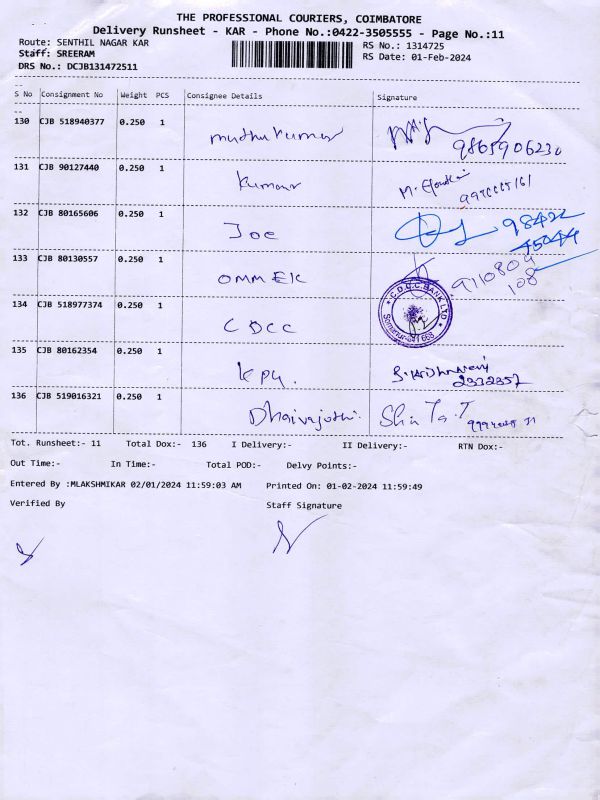 THE PROFESSIONAL COURIERS, COIMBATORE
Delivery Runsheet - KAR - Phone No.:0422-3505555 - Page No.:11
Route: SENTHIL NAGAR KAR RS No.: 1314725
Staff: SREERAM RS Date: 01-Feb-2024
DRS No.: DCJB131472511
S No Consignment No Weight PCS Consignee Details Signature
130 CJB 518940377 0.250 1 muthukumar 9865906230
131 CJB 90127440 0.250 1 kumar
132 CJB 80165606 0.250 1 Joe 98422
45044
133 CJB 80130557 0.250 1 OMMEK 9110804
108
134 CJB 518977374 0.250 1 CDCC C.D.C.C.BANK LTD
135 CJB 80162354 0.250 1 kpy. 2332357
136 CJB 519016321 0.250 1 Dhaivajothi.
Tot. Runsheet:- 11 Total Dox:- 136 I Delivery:- II Delivery:- RTN Dox:-
Out Time:- In Time:- Total POD:- Delvy Points:-
Entered By :MLAKSHMIKAR 02/01/2024 11:59:03 AM Printed On: 01-02-2024 11:59:49
Verified By Staff Signature